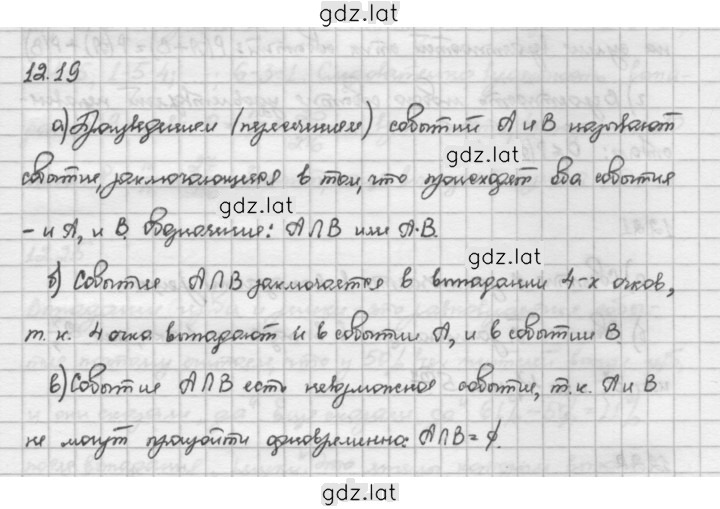 gdz.lat
12.19
а) Произведением (пересечением) событий A и B называют
gdz.lat
событие, заключающееся в том, что происходят оба события
gdz.lat
- и A, и B. Обозначение: A∩B или A·B.
gdz.lat
б) Событие A∩B заключается в выпадании 4-х очков,
т. к. 4 очка выпадают и в событии A, и в событии B
в) Событие A∩B есть невозможное событие, т.к. A и B
не могут произойти одновременно: A∩B = ∅.
gdz.lat